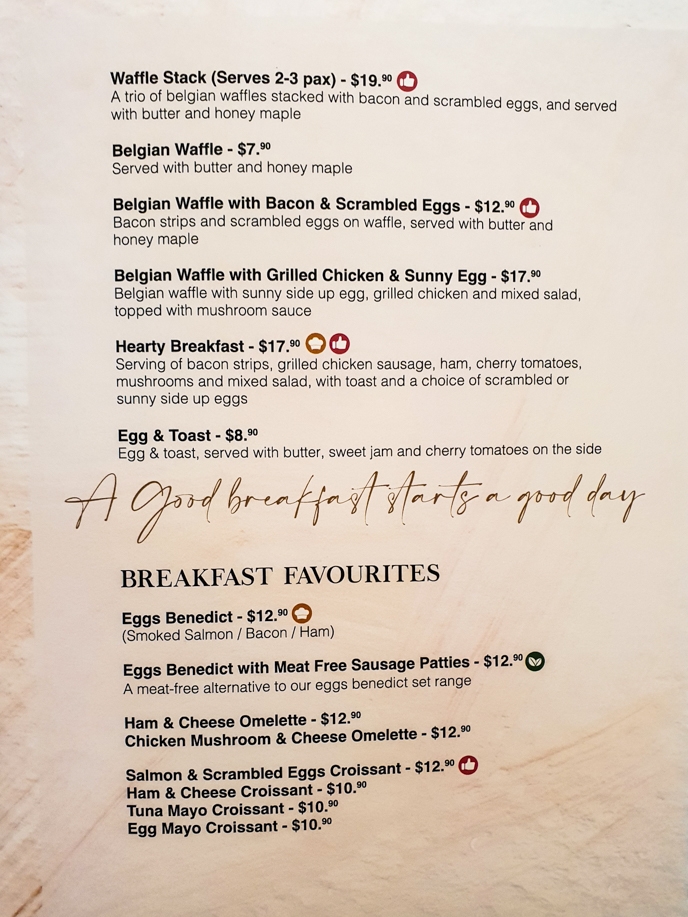 Waffle Stack (Serves 2-3 pax) - $19.90
A trio of belgian waffles stacked with bacon and scrambled eggs, and served
with butter and honey maple
Belgian Waffle - $7.90
Served with butter and honey maple
Belgian Waffle with Bacon & Scrambled Eggs - $12.90
Bacon strips and scrambled eggs on waffle, served with butter and
honey maple
Belgian Waffle with Grilled Chicken & Sunny Egg - $17.90
Belgian waffle with sunny side up egg, grilled chicken and mixed salad,
topped with mushroom sauce
Hearty Breakfast - $17.90
Serving of bacon strips, grilled chicken sausage, ham, cherry tomatoes,
mushrooms and mixed salad, with toast and a choice of scrambled or
sunny side up eggs
Egg & Toast - $8.90
Egg & toast, served with butter, sweet jam and cherry tomatoes on the side
A Good breakfast starts a good day
BREAKFAST FAVOURITES
Eggs Benedict - $12.90
(Smoked Salmon / Bacon / Ham)
Eggs Benedict with Meat Free Sausage Patties - $12.90
A meat-free alternative to our eggs benedict set range
Ham & Cheese Omelette - $12.90
Chicken Mushroom & Cheese Omelette - $12.90
Salmon & Scrambled Eggs Croissant - $12.90
Ham & Cheese Croissant - $10.90
Tuna Mayo Croissant - $10.90
Egg Mayo Croissant - $10.90